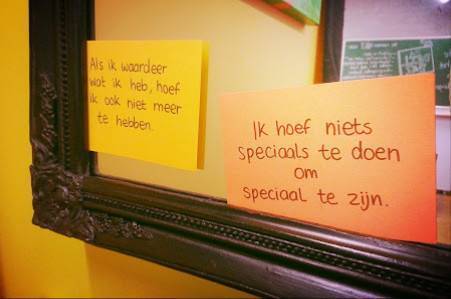 Als ik waardeer
wat ik heb, hoef
ik ook niet meer
te hebben.
Ik hoef niets
speciaals te doen
om
speciaal te zijn.